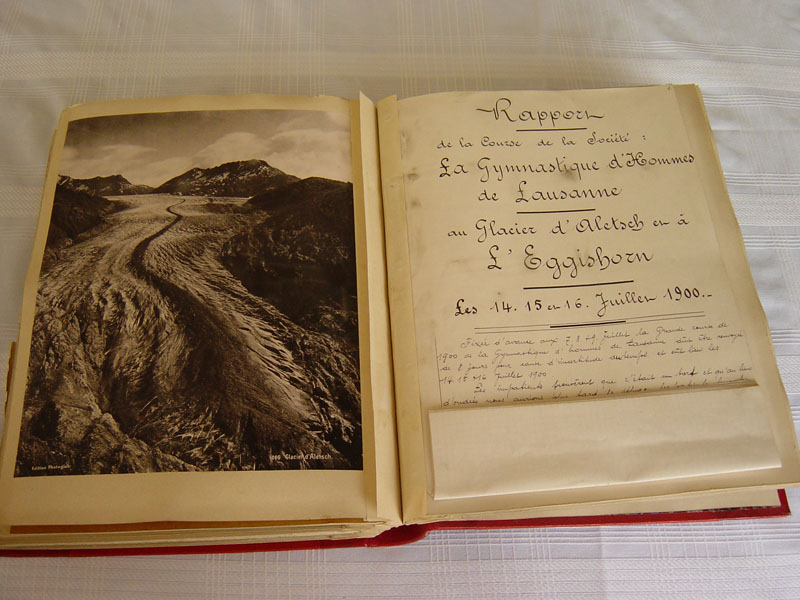 Edition Photoglob
1000 Glacier d'Aletsch.
Rapport
de la Course de la Société :
La Gymnastique d'Hommes
de Lausanne
au Glacier d'Aletsch et à
L'Eggishorn
Les 14. 15 et 16. Juillet 1900.-
Fixée d'avance aux 7, 8 & 9 Juillet la Grande course de
1900 de la Gymnastique d'hommes de Lausanne dût être renvoyée
de 8 jours pour cause d'incertitude du temps, et eût lieu les
14. 15 & 16 Juillet 1900.
Les impatients trouvèrent que c'était un et qu'au lieu